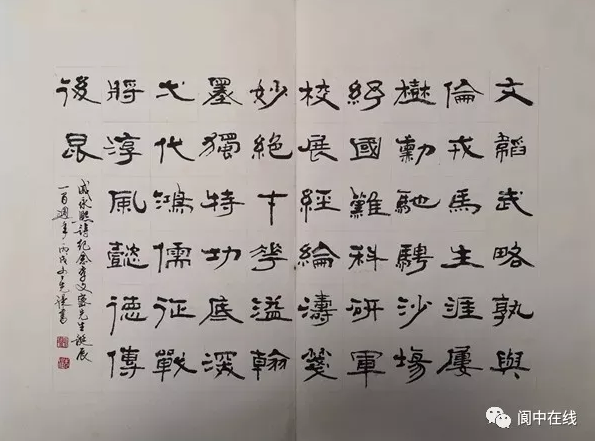 文韜武略孰與
倫戎馬生涯屢
樹勳馳騁沙場
紓國難科研軍
校展經綸濤箋
妙絕才華溢翰
墨獨特功底深
弋代鴻儒征戰
將淳風懿德傳
後昆
詩紀念李文盛先生誕辰
一百週年丙戌
阆中在线